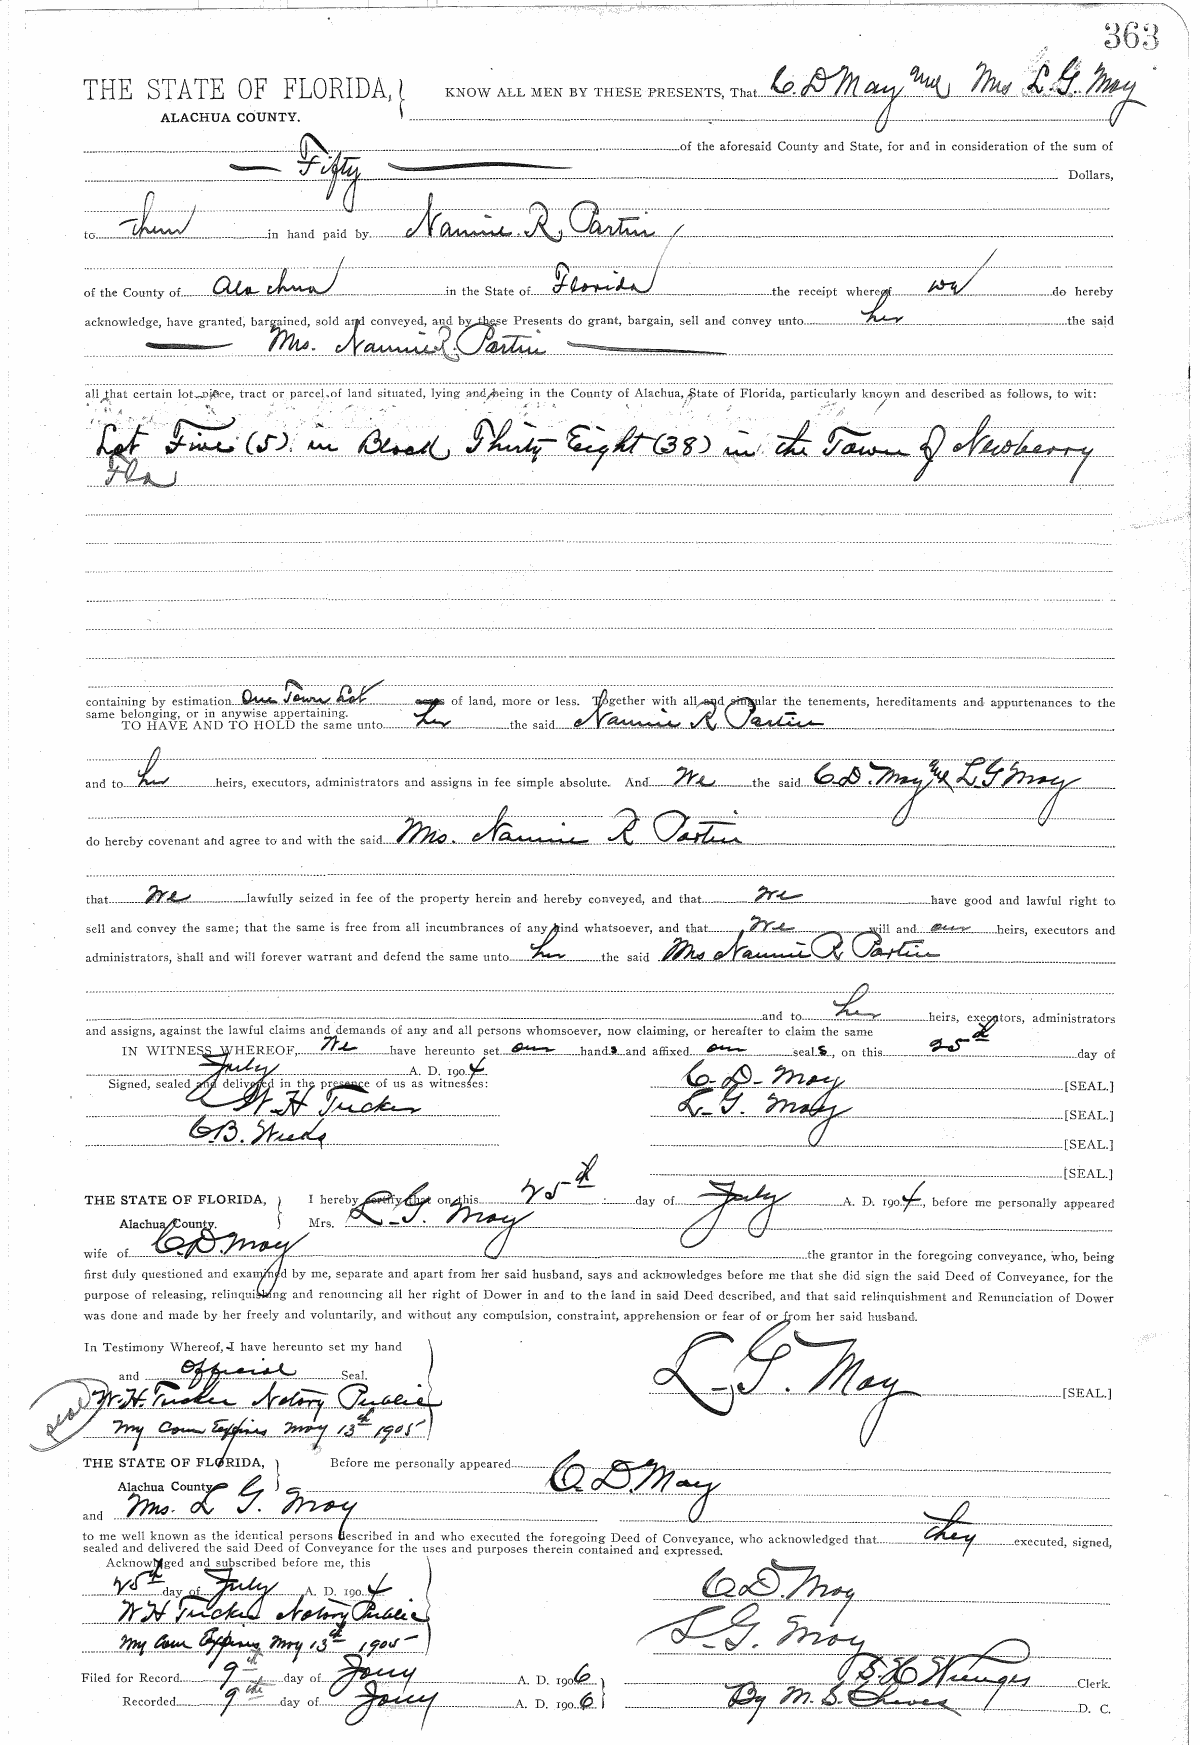 363
THE STATE OF FLORIDA, KNOW ALL MEN BY THESE PRESENTS, That C. D May and Mrs L. G. May
ALACHUA COUNTY.
of the aforesaid County and State, for and in consideration of the sum of
Fifty Dollars,
to them in hand paid by Nannie. R, Partin
of the County of Alachua in the State of Florida the receipt whereof we do hereby
acknowledge, have granted, bargained, sold and conveyed, and by these Presents do grant, bargain, sell and convey unto her the said
Mrs. Nannie R. Partin
all that certain lot piece, tract or parcel of land situated, lying and being in the County of Alachua, State of Florida, particularly known and described as follows, to wit:
Lot Five (5) in Block Thirty Eight (38) in the Town of Newberry
Fla
containing by estimation One Town Lot acres of land, more or less. Together with all and singular the tenements, hereditaments and appurtenances to the
same belonging, or in anywise appertaining.
TO HAVE AND TO HOLD the same unto her the said Nannie R Partin
and to her heirs, executors, administrators and assigns in fee simple absolute. And We the said C. D. May and L G May
do hereby covenant and agree to and with the said Mrs. Nannie R Partin
that We lawfully seized in fee of the property herein and hereby conveyed, and that We have good and lawful right to
sell and convey the same; that the same is free from all incumbrances of any kind whatsoever, and that We will and our heirs, executors and
administrators, shall and will forever warrant and defend the same unto her the said Mrs Nannie R Partin
and to her heirs, executors, administrators
and assigns, against the lawful claims and demands of any and all persons whomsoever, now claiming, or hereafter to claim the same
IN WITNESS WHEREOF, We have hereunto set our hands and affixed our seals, on this 25th day of
July A. D. 1904
Signed, sealed and delivered in the presence of us as witnesses: C. D. May [SEAL.]
W. H Tucker L. G. May [SEAL.]
C. B. [SEAL.]
[SEAL.]
THE STATE OF FLORIDA, I hereby certify that on this 25th day of July A. D. 1904, before me personally appeared
Alachua County. Mrs. L. G. May
wife of C. D. May the grantor in the foregoing conveyance, who, being
first duly questioned and examined by me, separate and apart from her said husband, says and acknowledges before me that she did sign the said Deed of Conveyance, for the
purpose of releasing, relinquishing and renouncing all her right of Dower in and to the land in said Deed described, and that said relinquishment and Renunciation of Dower
was done and made by her freely and voluntarily, and without any compulsion, constraint, apprehension or fear of or from her said husband.
In Testimony Whereof, I have hereunto set my hand
and Official Seal. L. G. May [SEAL.]
seal W. H. Tucker Notary Public
My Com Expires May 13th 1905
THE STATE OF FLORIDA, Before me personally appeared C. D. May
Alachua County
and Mrs. L G. May
to me well known as the identical persons described in and who executed the foregoing Deed of Conveyance, who acknowledged that they executed, signed,
sealed and delivered the said Deed of Conveyance for the uses and purposes therein contained and expressed.
Acknowledged and subscribed before me, this
25th day of July A. D. 1904 C. D. May
W H Tucker Notary Public L. G. May
My Com Expires May 13th 1905
Filed for Record 9th day of Jany A. D. 1906 S. H. Wienges Clerk.
Recorded 9th day of Jany A. D. 1906 By M. S. Cheves D. C.